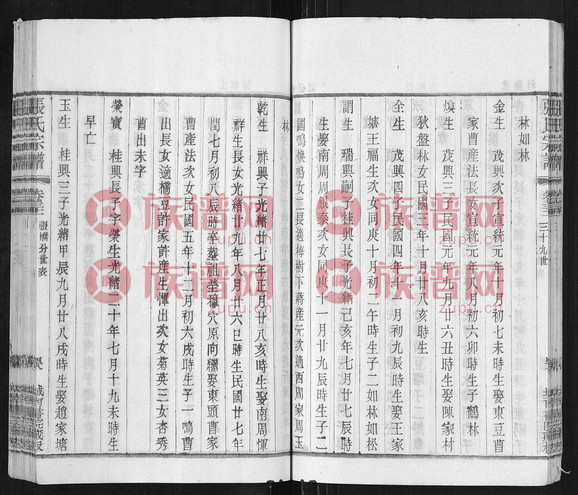 張氏宗譜
卷三
三十九世
林如林
金生 茂興子宣統元年十月初九亥時生娶東豆曹
家曹產法長女宣統元年八月初六卯時生子鶴林
煥生 茂興三子宣統元年九月二六丑時生娶陳家村
狄盤林女民國三年十月廿八亥時生
全生 茂興四子民國四年十一月初九辰時生娶王家
城王福生次女同庚十月初二午時生子二如林如松
謂生 瑞興嗣子桂興長子光緒己亥年七月廿一辰時
生娶南周周銀泰次女同庚十一月廿九辰時生子二
國鳴榮鳴女二長適樟樹下蔣產元次適西周家周玉
林
乾生 祥興子光緒廿七年正月廿八亥時生娶南周惲
祥生長女光緒廿九年八月廿六巳時生民國廿七年
閏七月初八辰時卒葬祖塋穆穴原向繼娶東頭曹家
曹產法次女民國五年十二月初六戌時生子一鳴曹
出長女適橋豆許家許產生惲出次女菊英三女杏秀
曹出未字
榮寶 桂興長子字榮生光緒二十年七月十九未時生
早亡
玉生 桂興三子光緒甲辰九月廿八戌時生娶趙家塘
張氏宗譜
卷三
分世表
族谱网
族谱网
族谱网
族谱网